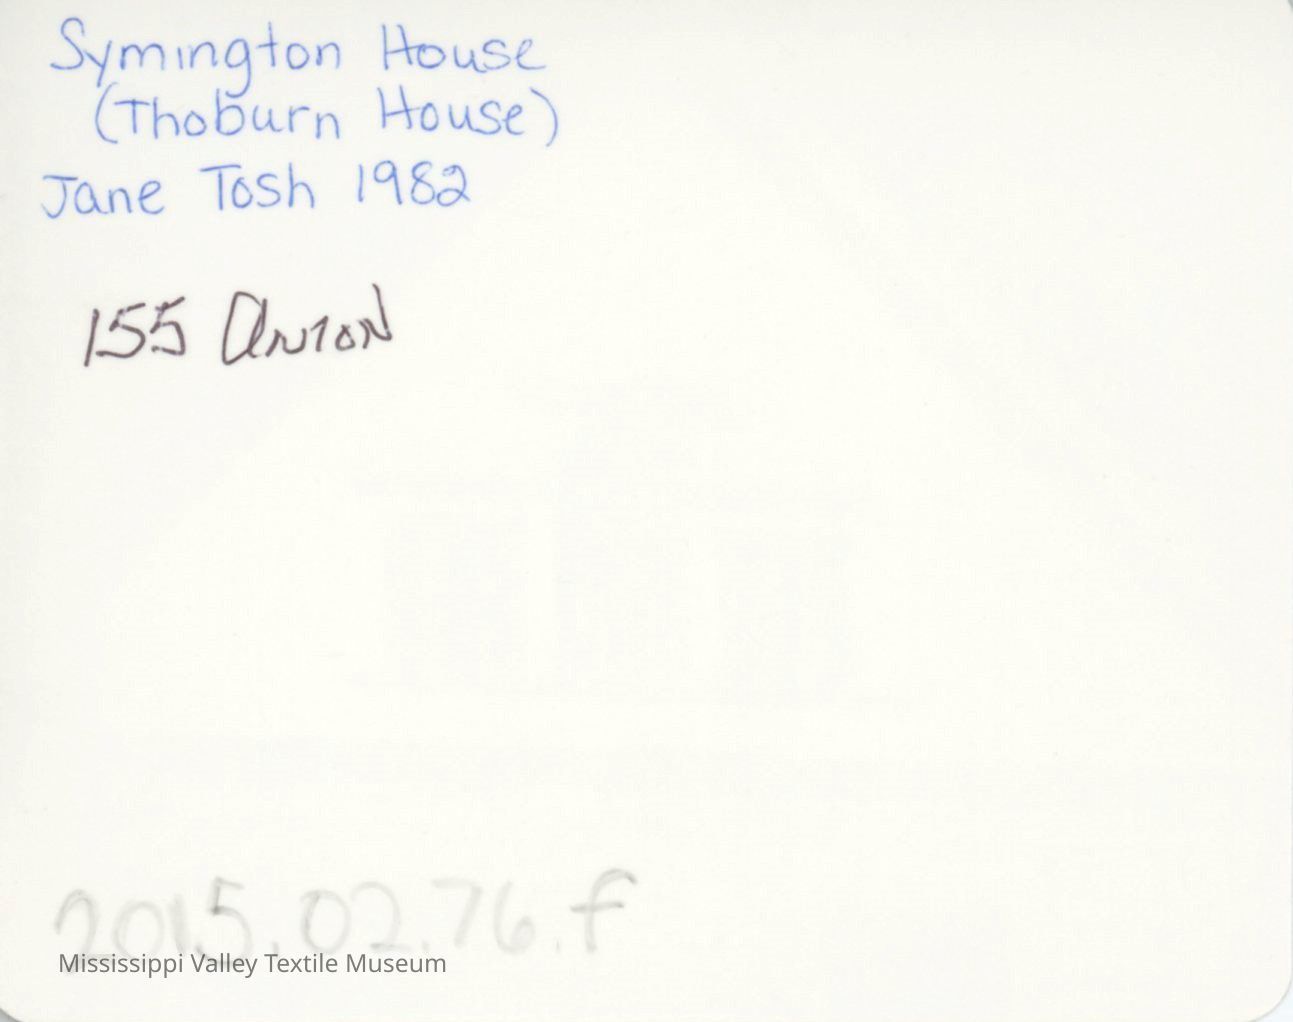 Symington House
(Thoburn House)
Jane Tosh 1982
155 Union
2015.02.76.f
Mississippi Valley Textile Museum